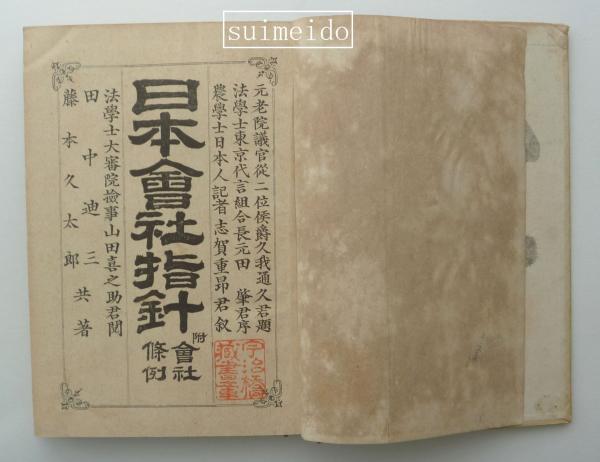 suimeido
元老院議官從二位侯爵久我通久君題
法學士東京代言組合長元田肇君序
農學士日本人記者志賀重昂君叙
日本會社指針
附
會社
條例
法學士大審院檢事山田喜之助君閱
田中迪三
藤本久太郎
共著
藏書章